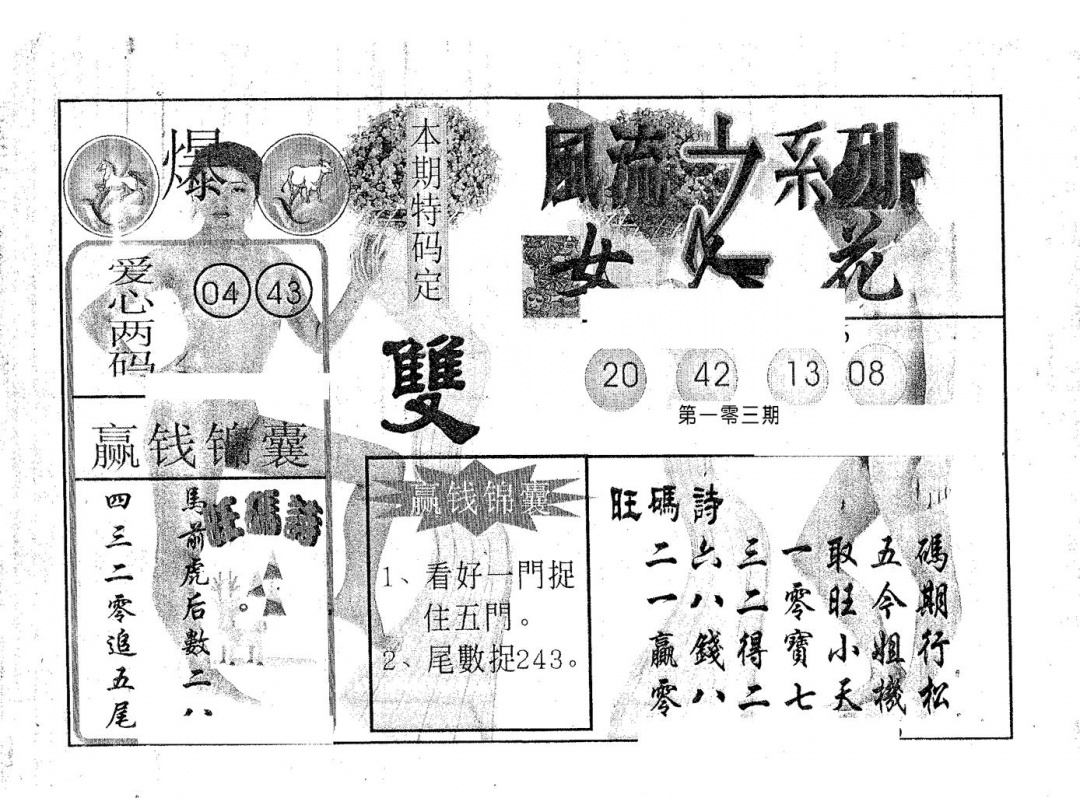 風流之系列
女人花
爆
本期特码定
雙
爱心两码
04 43
20 42 13 08
第一零三期
赢钱锦囊
旺碼詩
馬前虎后數二八
四三二零追五尾
赢钱锦囊
1、看好一門捉
住五門。
2、尾數捉243。
旺碼詩
二六三一取五碼
一八二零旺今期
贏錢得寶小姐行
零八二七天機松